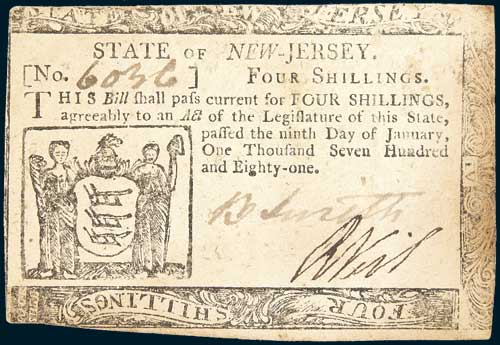 JERSEY
STATE OF NEW-JERSEY.
[No. 6036] FOUR SHILLINGS.
THIS Bill ſhall paſs current for FOUR SHILLINGS,
agreeably to an Act of the Legiſlature of this State,
paſſed the ninth Day of January,
One Thouſand Seven Hundred
and Eighty-one.
B Smith
R Neil
FOUR SHILLINGS